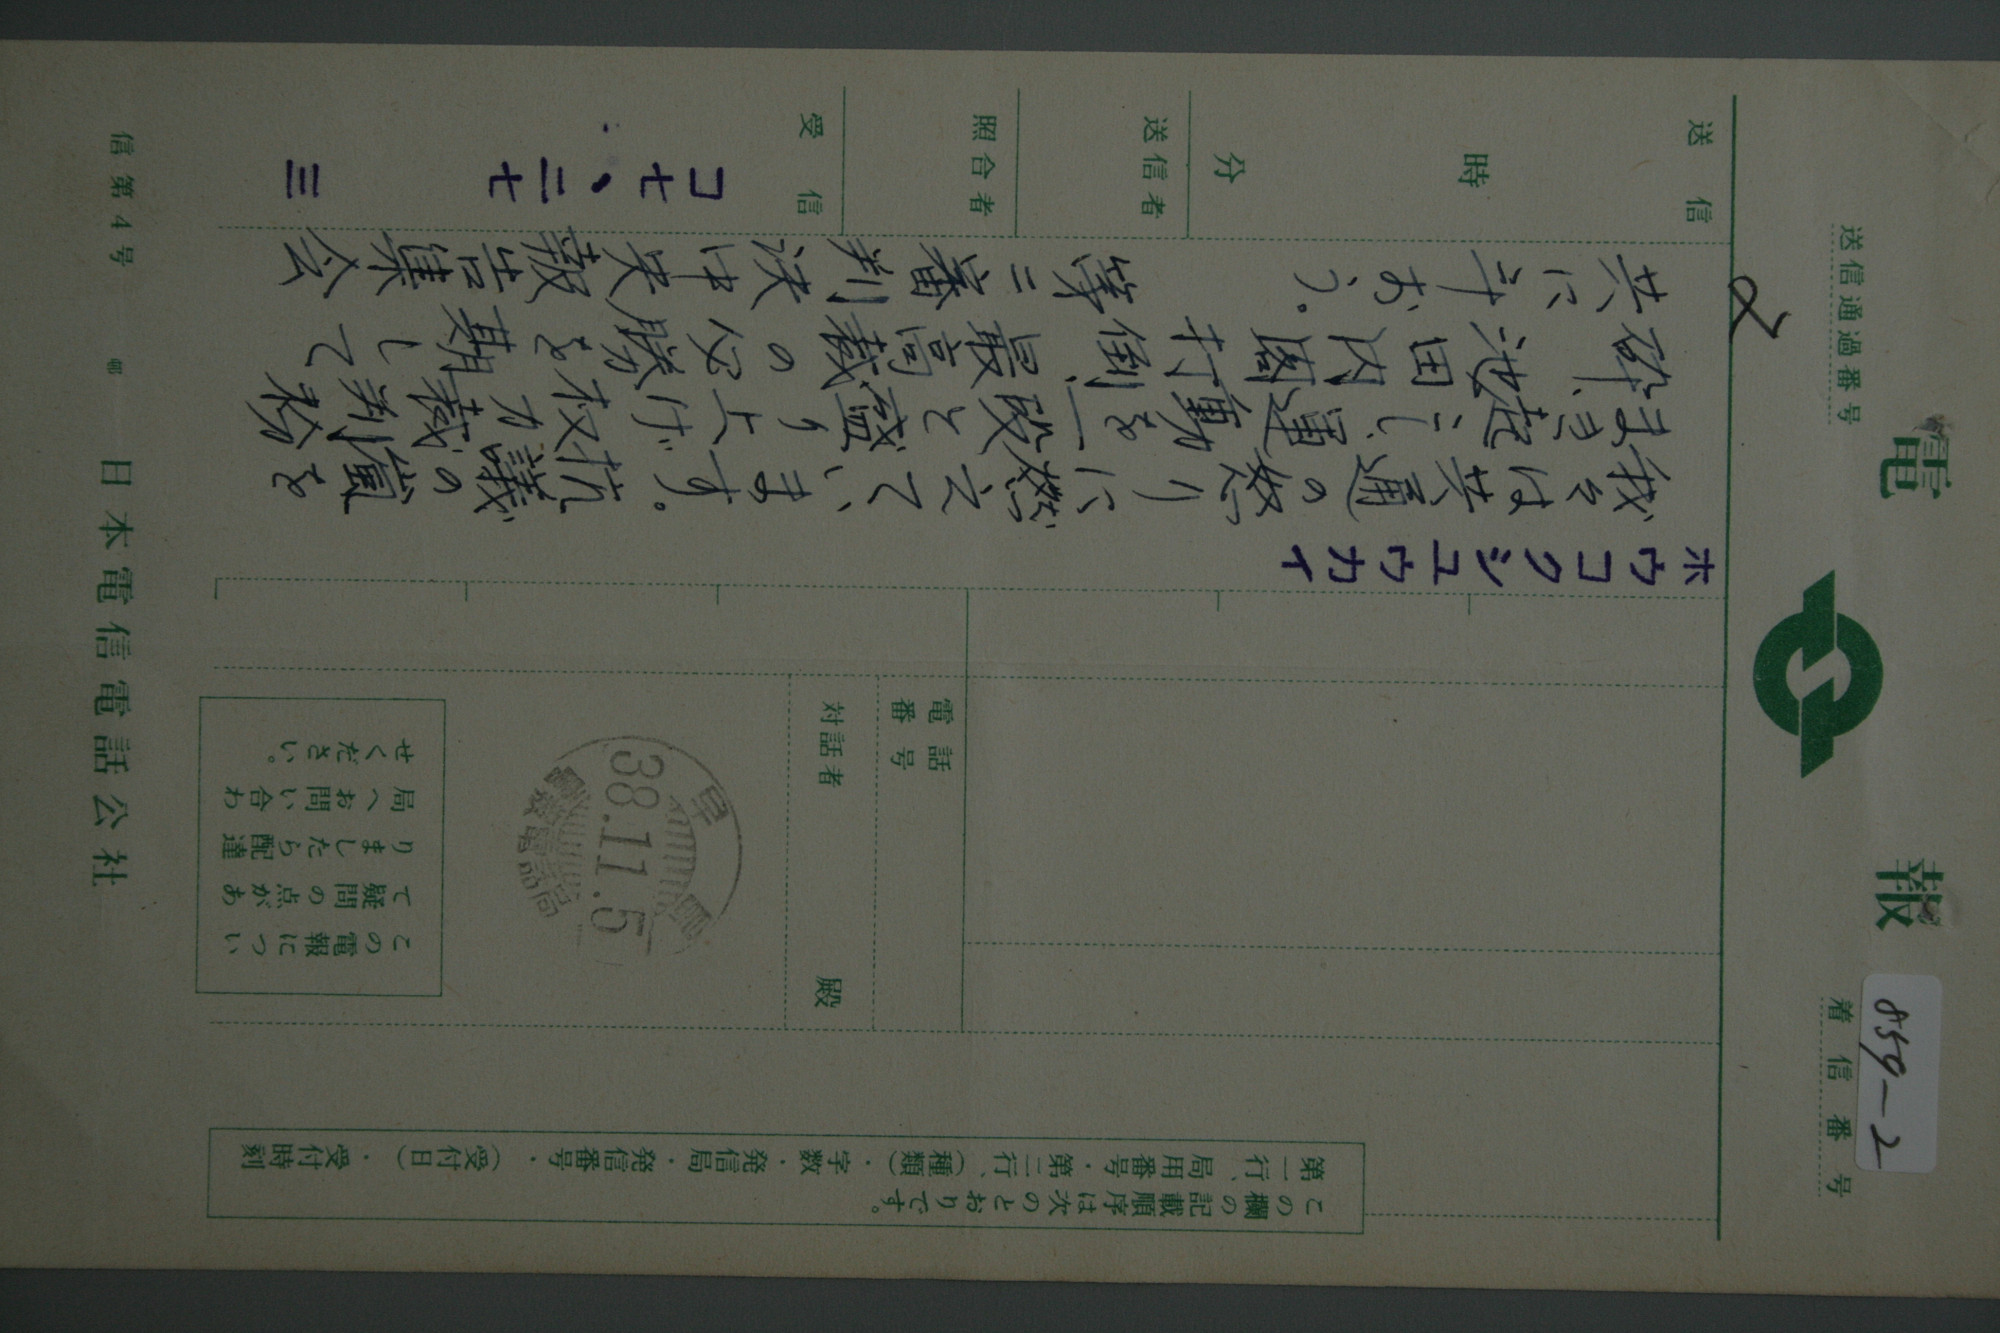 電報
859-2
着信番号
送信通過番号
この欄の記載順序は次のとおりです。
第一行、局用番号・第二行、(種類)・字数・発信局・発信番号・(受付日)・受付時刻
電話番号
対話者 殿
38.11.5
電報電話局
この電報につい
て疑問の点があ
りましたら配達
局へお問い合わ
せください。
ホウコクシユウカイ
我々は共通の怒りに燃えています。抗議の嵐を
まき起し、運動を一段と盛り上げ権力裁判粉
砕、池田内閣打倒、最高裁の必勝を期して
共に斗おう。 第二審判決中央報告集会
送信
時
分
送信者
照合者
受信
コ七、二七 三
信第4号
日本電信電話公社